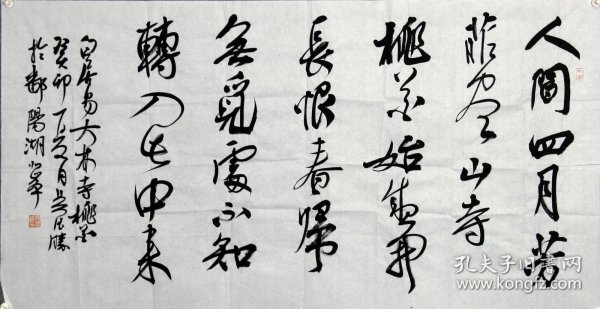 人間四月芳
菲尽山寺
桃花始盛開
長恨春歸
無覓處不知
轉入此中来
白居易大林寺桃花
癸卯
於鄱陽湖
孔夫子旧书网
www.kongfz.com